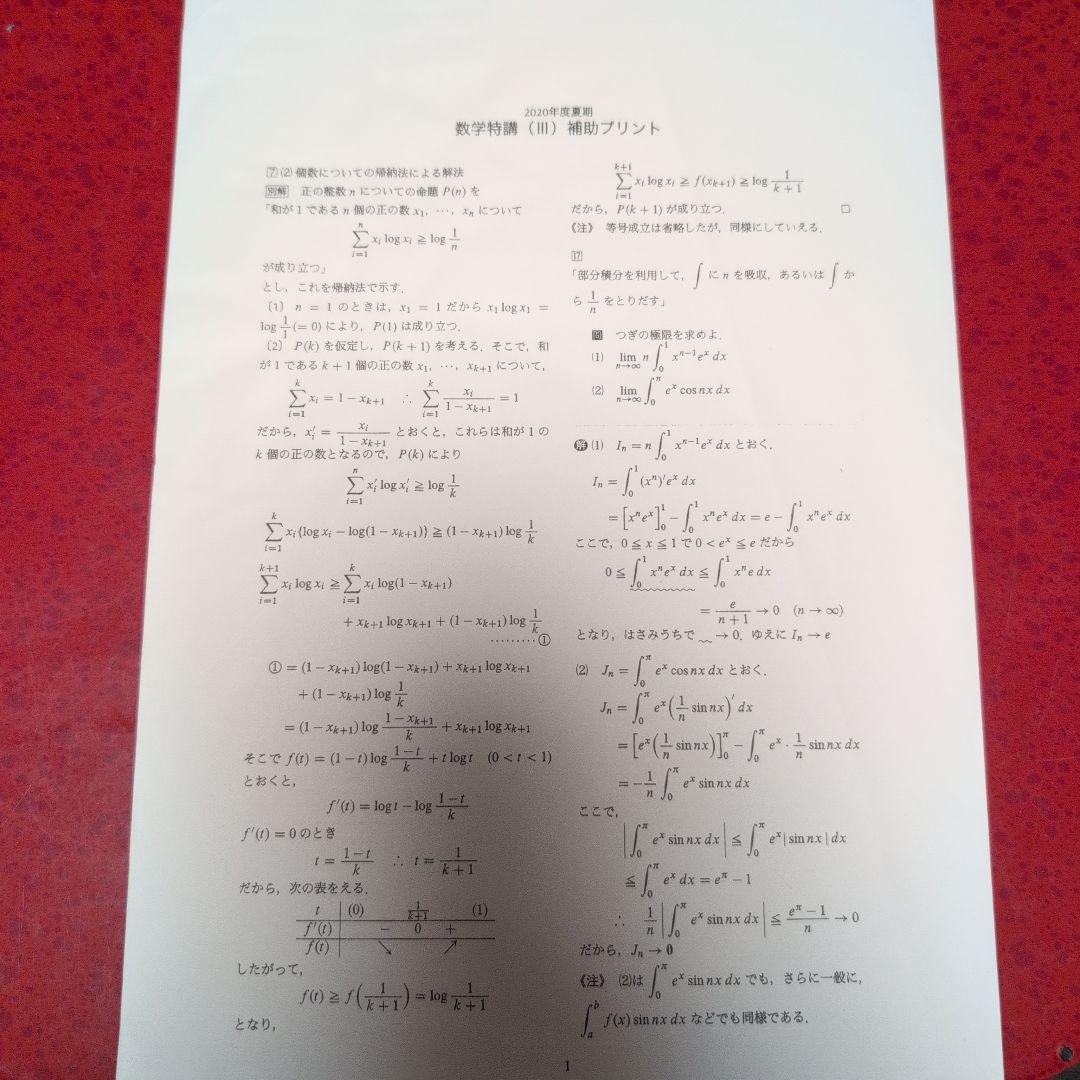 2020年度夏期
数学特講（Ⅲ）補助プリント
⑦ (2) 個数についての帰納法による解法
別解 正の整数 n についての命題 P(n) を
「和が 1 である n 個の正の数 x₁, ⋯, xₙ について
∑_{i=1}^{n} xᵢ log xᵢ ≧ log 1/n
が成り立つ」
とし，これを帰納法で示す．
〔1〕 n = 1 のときは，x₁ = 1 だから x₁ log x₁ =
log 1/1 (= 0) により，P(1) は成り立つ．
〔2〕 P(k) を仮定し，P(k + 1) を考える．そこで，和
が 1 である k + 1 個の正の数 x₁, ⋯, x_{k+1} について，
∑_{i=1}^{k} xᵢ = 1 − x_{k+1} ∴ ∑_{i=1}^{k} xᵢ/(1 − x_{k+1}) = 1
だから，xᵢ′ = xᵢ/(1 − x_{k+1}) とおくと，これらは和が 1 の
k 個の正の数となるので，P(k) により
∑_{i=1}^{n} xᵢ′ log xᵢ′ ≧ log 1/k
∑_{i=1}^{k} xᵢ{log xᵢ − log(1 − x_{k+1})} ≧ (1 − x_{k+1}) log 1/k
∑_{i=1}^{k+1} xᵢ log xᵢ ≧ ∑_{i=1}^{k} xᵢ log(1 − x_{k+1})
+ x_{k+1} log x_{k+1} + (1 − x_{k+1}) log 1/k
⋯⋯⋯①
① = (1 − x_{k+1}) log(1 − x_{k+1}) + x_{k+1} log x_{k+1}
+ (1 − x_{k+1}) log 1/k
= (1 − x_{k+1}) log (1 − x_{k+1})/k + x_{k+1} log x_{k+1}
そこで f(t) = (1 − t) log (1 − t)/k + t log t (0 < t < 1)
とおくと，
f′(t) = log t − log (1 − t)/k
f′(t) = 0 のとき
t = (1 − t)/k ∴ t = 1/(k + 1)
だから，次の表をえる．
t (0) 1/(k+1) (1)
f′(t) − 0 +
f(t) ↘ ↗
したがって，
f(t) ≧ f(1/(k + 1)) = log 1/(k + 1)
となり，
∑_{i=1}^{k+1} xᵢ log xᵢ ≧ f(x_{k+1}) ≧ log 1/(k + 1)
だから，P(k + 1) が成り立つ． □
《注》 等号成立は省略したが，同様にしていえる．
⑰
「部分積分を利用して，∫ に n を吸収，あるいは ∫ か
ら 1/n をとりだす」
問 つぎの極限を求めよ．
(1) lim_{n→∞} n ∫₀¹ x^{n−1} e^x dx
(2) lim_{n→∞} ∫₀^π e^x cos nx dx
解 (1) Iₙ = n ∫₀¹ x^{n−1} e^x dx とおく．
Iₙ = ∫₀¹ (xⁿ)′ e^x dx
= [xⁿ e^x]₀¹ − ∫₀¹ xⁿ e^x dx = e − ∫₀¹ xⁿ e^x dx
ここで，0 ≦ x ≦ 1 で 0 < e^x ≦ e だから
0 ≦ ∫₀¹ xⁿ e^x dx ≦ ∫₀¹ xⁿ e dx
= e/(n + 1) → 0 (n → ∞)
となり，はさみうちで 〜〜 → 0．ゆえに Iₙ → e
(2) Jₙ = ∫₀^π e^x cos nx dx とおく．
Jₙ = ∫₀^π e^x (1/n sin nx)′ dx
= [e^x (1/n sin nx)]₀^π − ∫₀^π e^x · 1/n sin nx dx
= −1/n ∫₀^π e^x sin nx dx
ここで，
|∫₀^π e^x sin nx dx| ≦ ∫₀^π e^x |sin nx| dx
≦ ∫₀^π e^x dx = e^π − 1
∴ 1/n |∫₀^π e^x sin nx dx| ≦ (e^π − 1)/n → 0
だから，Jₙ → 0
《注》 (2)は ∫₀^π e^x sin nx dx でも，さらに一般に，
∫ₐᵇ f(x) sin nx dx などでも同様である．
1